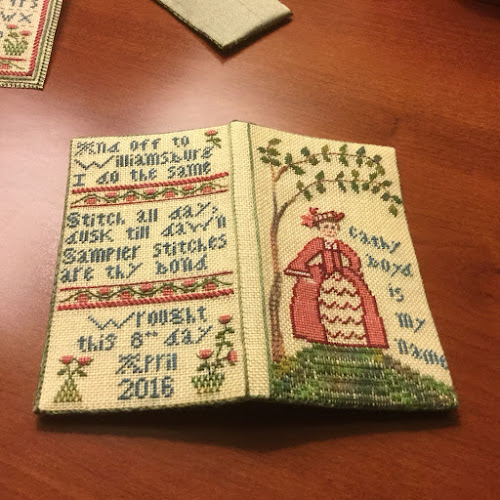 And off to
Williamsburg
I do the same
Stitch all day,
dusk till dawn
Sampler stitches
are thy bond
Wrought
this 8th day
April
2016
Cathy
boyd
is
my
name
WX